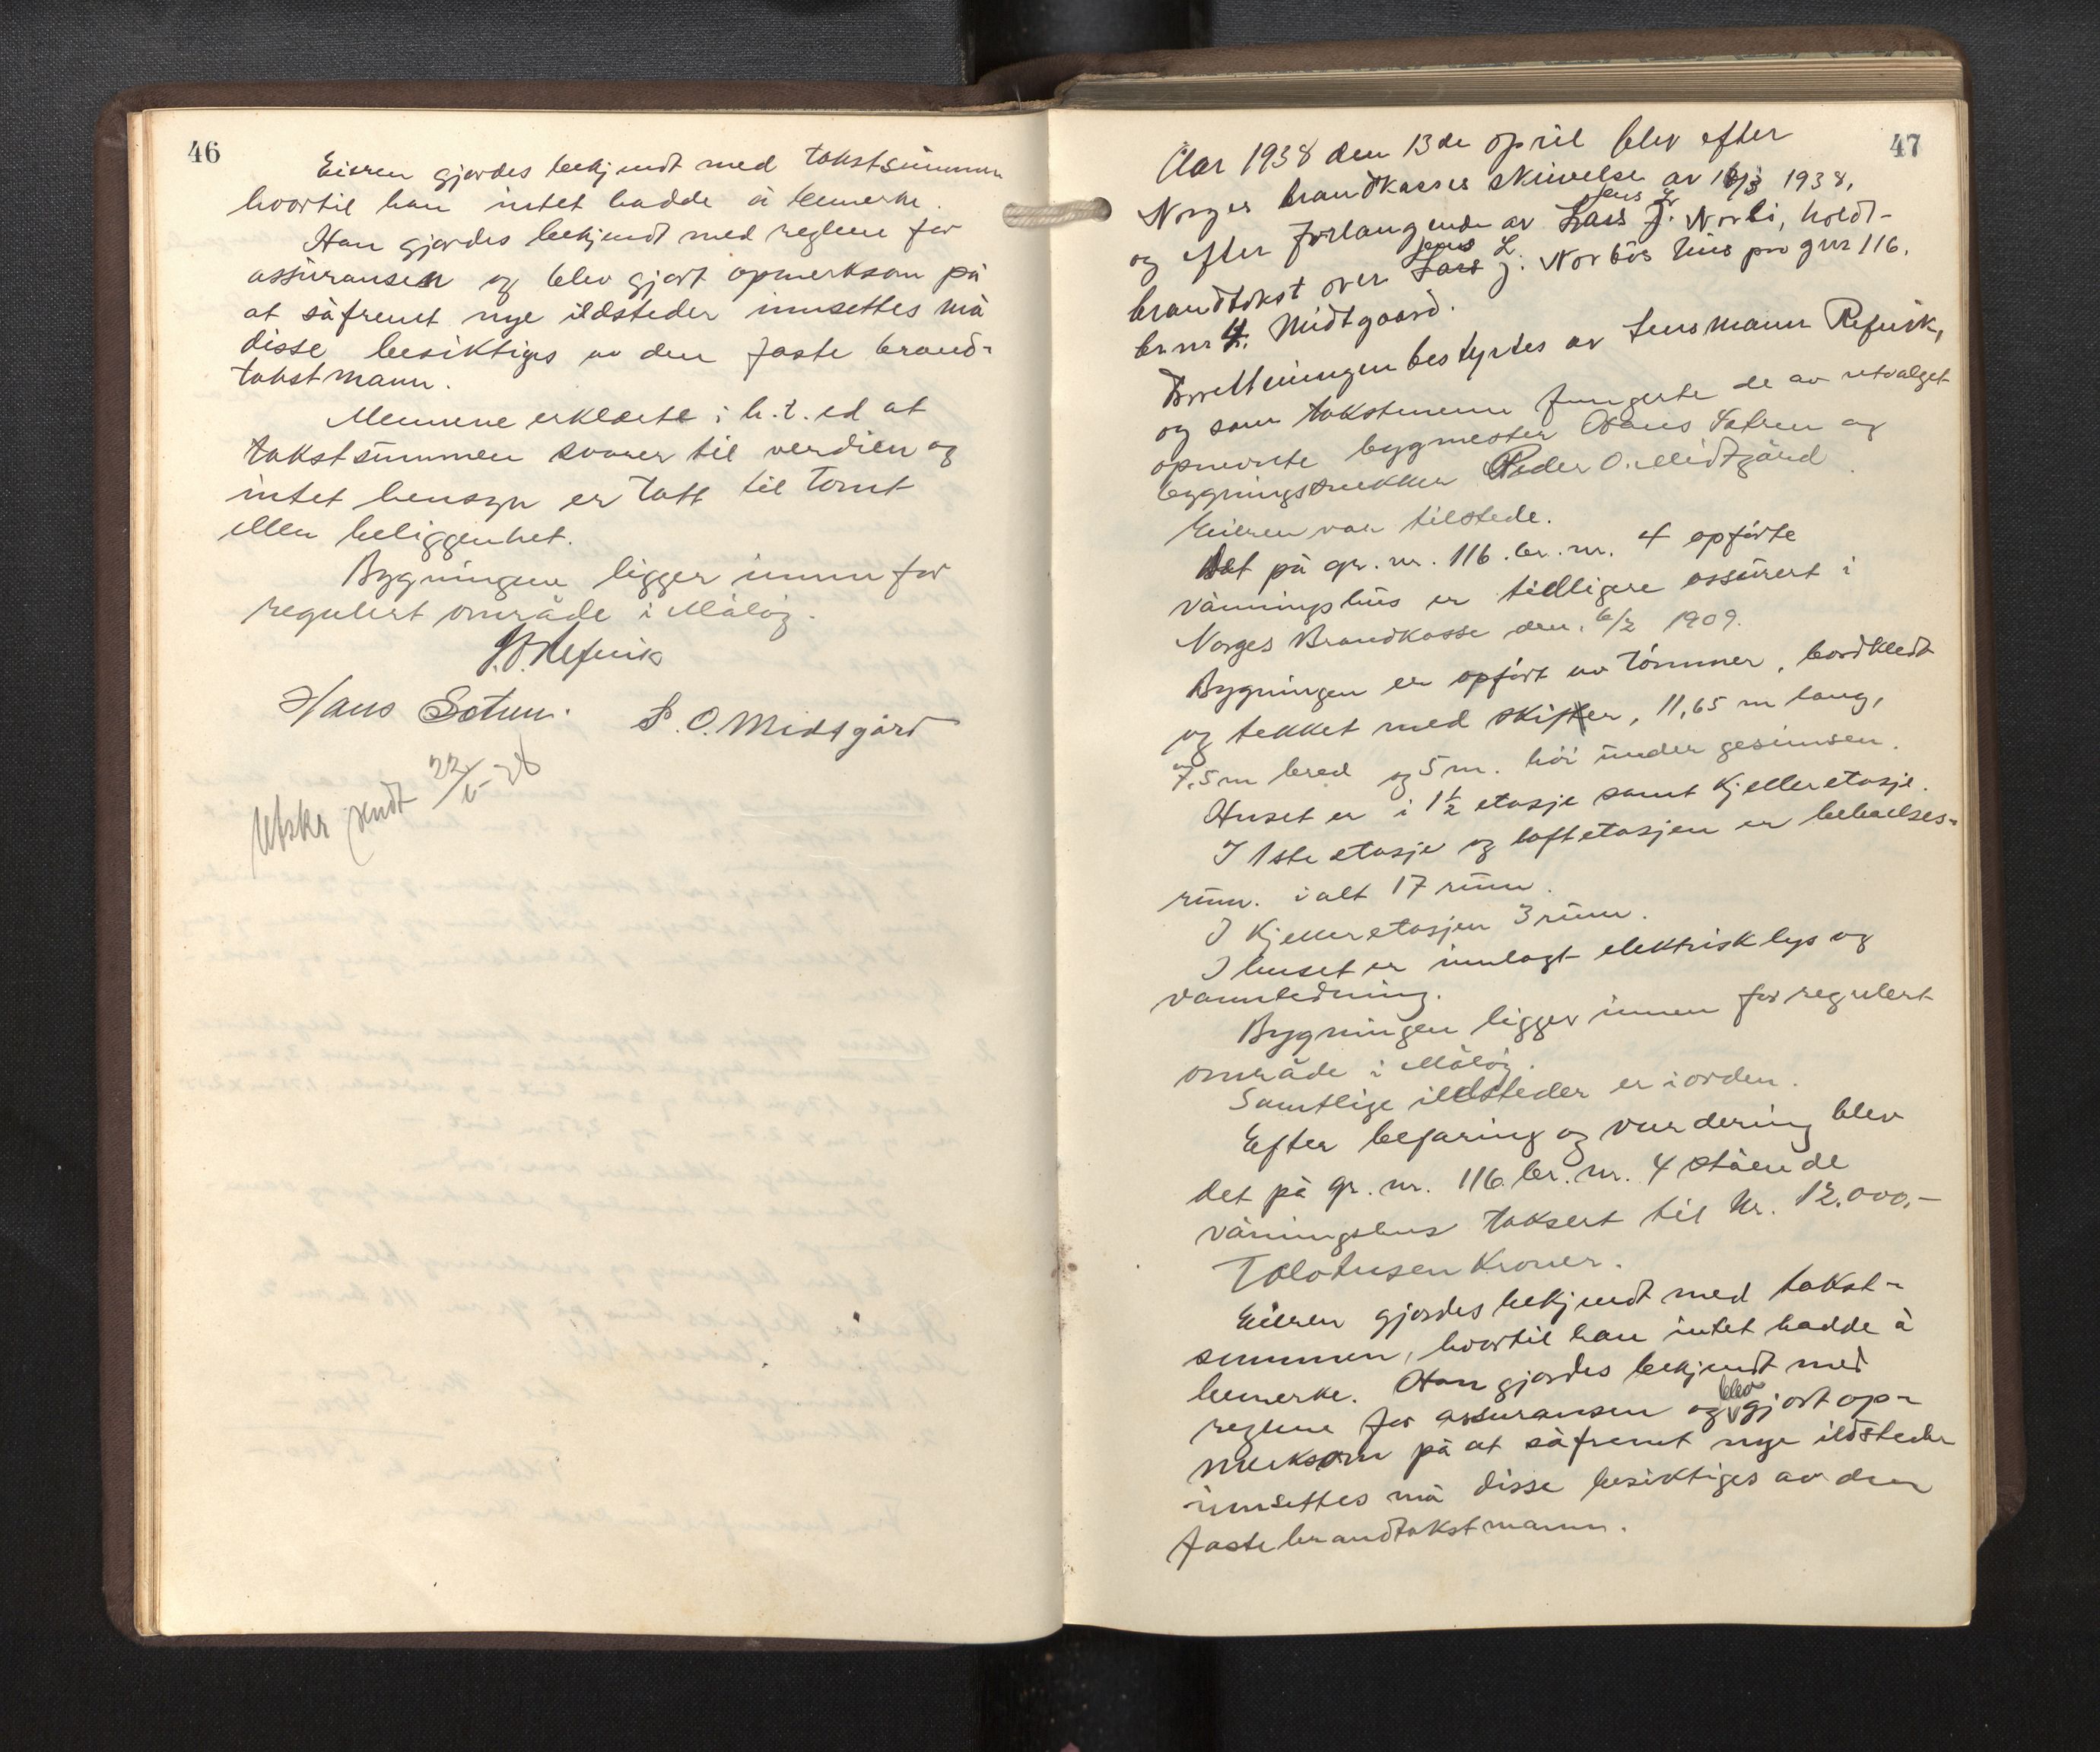 46
Eieren gjordes bekjendt med takstsummen
hvortil han intet hadde å bemerke.
Han gjordes bekjendt med reglene for
assuransen og blev gjort opmerksom på
at såfremt nye ildsteder innsettes må
disse besiktiges av den faste brand-
takstmann.
Mennene erklærte i h. t. ed at
takstsummen svarer til verdien og
intet hensyn er tatt til tomt
eller beliggenhet.
Bygningen ligger innen for
regulert område i Måløy.
Refvik
Hans Sætren. P. O. Midtgård
Utskr sendt 22/5-38
47
Aar 1938 den 13de april blev efter
Norges brandkasses skrivelse av 1938,
Jens L
og efter forlangende av Lars J. Norbö, holdt-
Jens L
brandtakst over Lars J. Norbös hus på gnr 116.
br nr 4. Midtgaard.
Forretningen bestyrtes av Lensmann Refvik,
og som takstmenn fungerte de av utvalget
opnevnte bygmester Hans Sætren og
bygningssnekker Peder O. Midtgård
Eieren var tilstede.
Det på gr. nr. 116. br. nr. 4 opførte
våningshus er tidligere assurert i
Norges Brandkasse den. 6/2 1909.
Bygningen er opført av tömmer, bordkledt
og tekket med skifer, 11,65 m lang,
7,5 m bred og 5 m. höi under gesimsen.
Huset er i 1½ etasje samt kjelleretasje.
I 1ste etasje og loftetasjen er beboelses-
rum. ialt 17 rum.
I kjelleretasjen 3 rum.
I huset er innlagt elektrisk lys og
vannledning.
Bygningen ligger innen for regulert
område i Måløy.
Samtlige ildsteder er i orden.
Efter befaring og vurdering blev
det på gr. nr. 116 br. nr. 4 stående
våningshus taksert til kr. 12.000,-
Tolvtusen kroner.
Eieren gjordes bekjendt med takst-
summen, hvortil han intet hadde å
bemerke. Han gjordes bekjendt med
blev
reglene for assuransen og gjort op-
merksom på at såfremt nye ildsteder
innsettes må disse besiktiges av den
faste brandtakstmann.